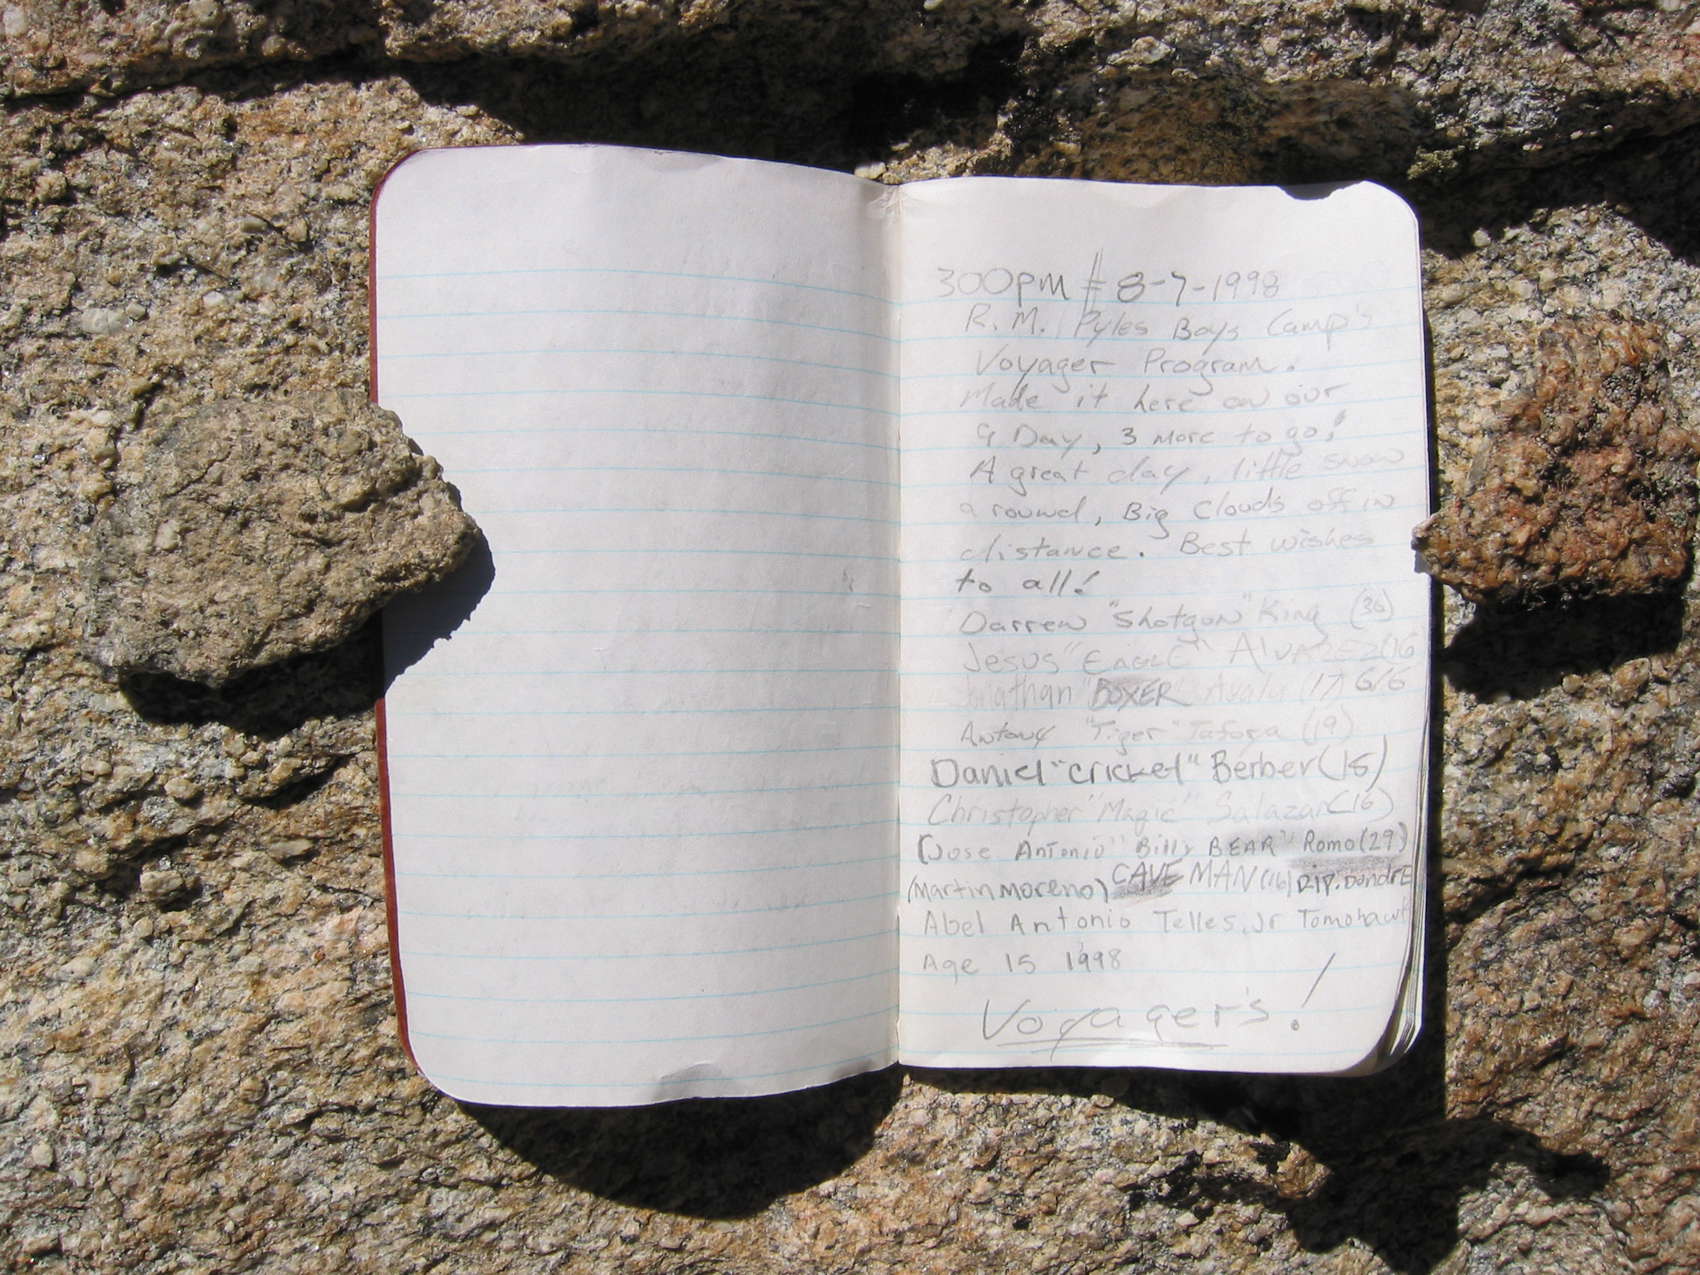 300pm # 8-7-1998
R.M. Pyles Boys Camp's
Voyager Program.
Made it here on our
9 Day, 3 more to go!
A great day, little snow
around, Big Clouds off in
distance. Best wishes
to all!
Darren "Shotgun" King (36)
Jesus "EAGLE" ALVAREZ (16
Jonathan "BOXER" (17) 6/6
Antony "Tiger" Tafoya (19)
Daniel "cricket" Berber (15)
Christopher "Magic" Salazar (16)
(Jose Antonio "Billy BEAR" Romo (29)
(Martin Moreno) CAVE MAN (16) R.I.P. DondrE
Abel Antonio Telles, Jr Tomohawk
Age 15 1998
Voyager's!